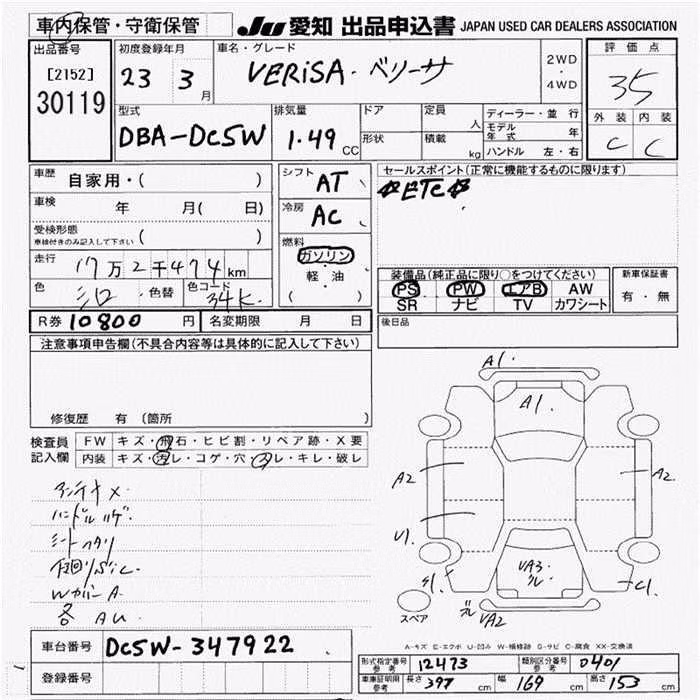 車内保管・守衛保管
JU 愛知 出品申込書 JAPAN USED CAR DEALERS ASSOCIATION
出品番号
[2152]
30119
初度登録年月
23 3 月
車名・グレード
VERiSA・ベリーサ
2WD
・
4WD
評価点
35
外装 内装
C C
型式
DBA-DC5W
排気量
1.49 CC
ドア
形状
定員
人
積載
kg
ディーラー・並行
モデル年式 年
ハンドル 左・右
車歴 自家用・( )
車検 年 月( 日)
受検形態
車検付きのみ記入して下さい ( )
走行 17万2千474km
色 シロ 色替 色コード 34K
シフト AT
冷房 AC
燃料
ガソリン
・
軽・油
( )
セールスポイント(正常に機能するものに限ります)
ETC
装備品(純正品に限り○をつけてください)
PS PW エアB AW
SR ナビ TV カワシート
新車保証書
有・無
R券 10800 円 名変期限 月 日
後日品
注意事項申告欄(不具合内容等は具体的に記入して下さい)
修復歴 有 (箇所 )
検査員
記入欄
FW キズ・飛石・ヒビ割・リペア跡・X要
内装 キズ・汚レ・コゲ・穴・スレ・キレ・破レ
アンテナ X
ハンドルハゲ
シートヘタリ
下廻りSiC
WカバーA
各 AU
A1.
A1.
A2
A2
U1.
VA3
S1.
C1.
VA2
スペア
A-キズ E-エクボ U-凹み W-補修跡 S-サビ C-腐食 XX-交換済
車台番号 DC5W-347922
登録番号
形式指定番号
参考
12473
類別区分番号
参考
0401
車庫証明用
参考
長さ 397 cm 幅 169 cm 高さ 153 cm